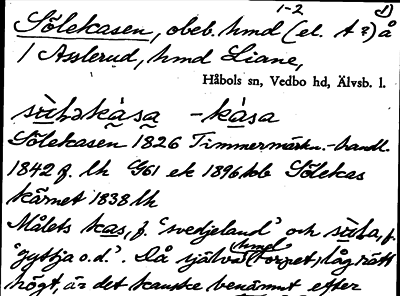 1-2 d)
Sölekasen, obeb. hmd (el. t?) å
1 Asslerud, hmd Liane,
Håbols sn, Vedbo hd, Älvsb. l.
-kåsa
Sölekasen 1826 Timmermärkn.-handl.
1842 f. lh G61 ek 1896 kb Sölekas
kärnet 1838 lh
Målets kas, f. 'svedjeland' och f.
'gyttja o.d.'. Då själva (hmd torpet) låg rätt
högt, är det kanske benämnt efter